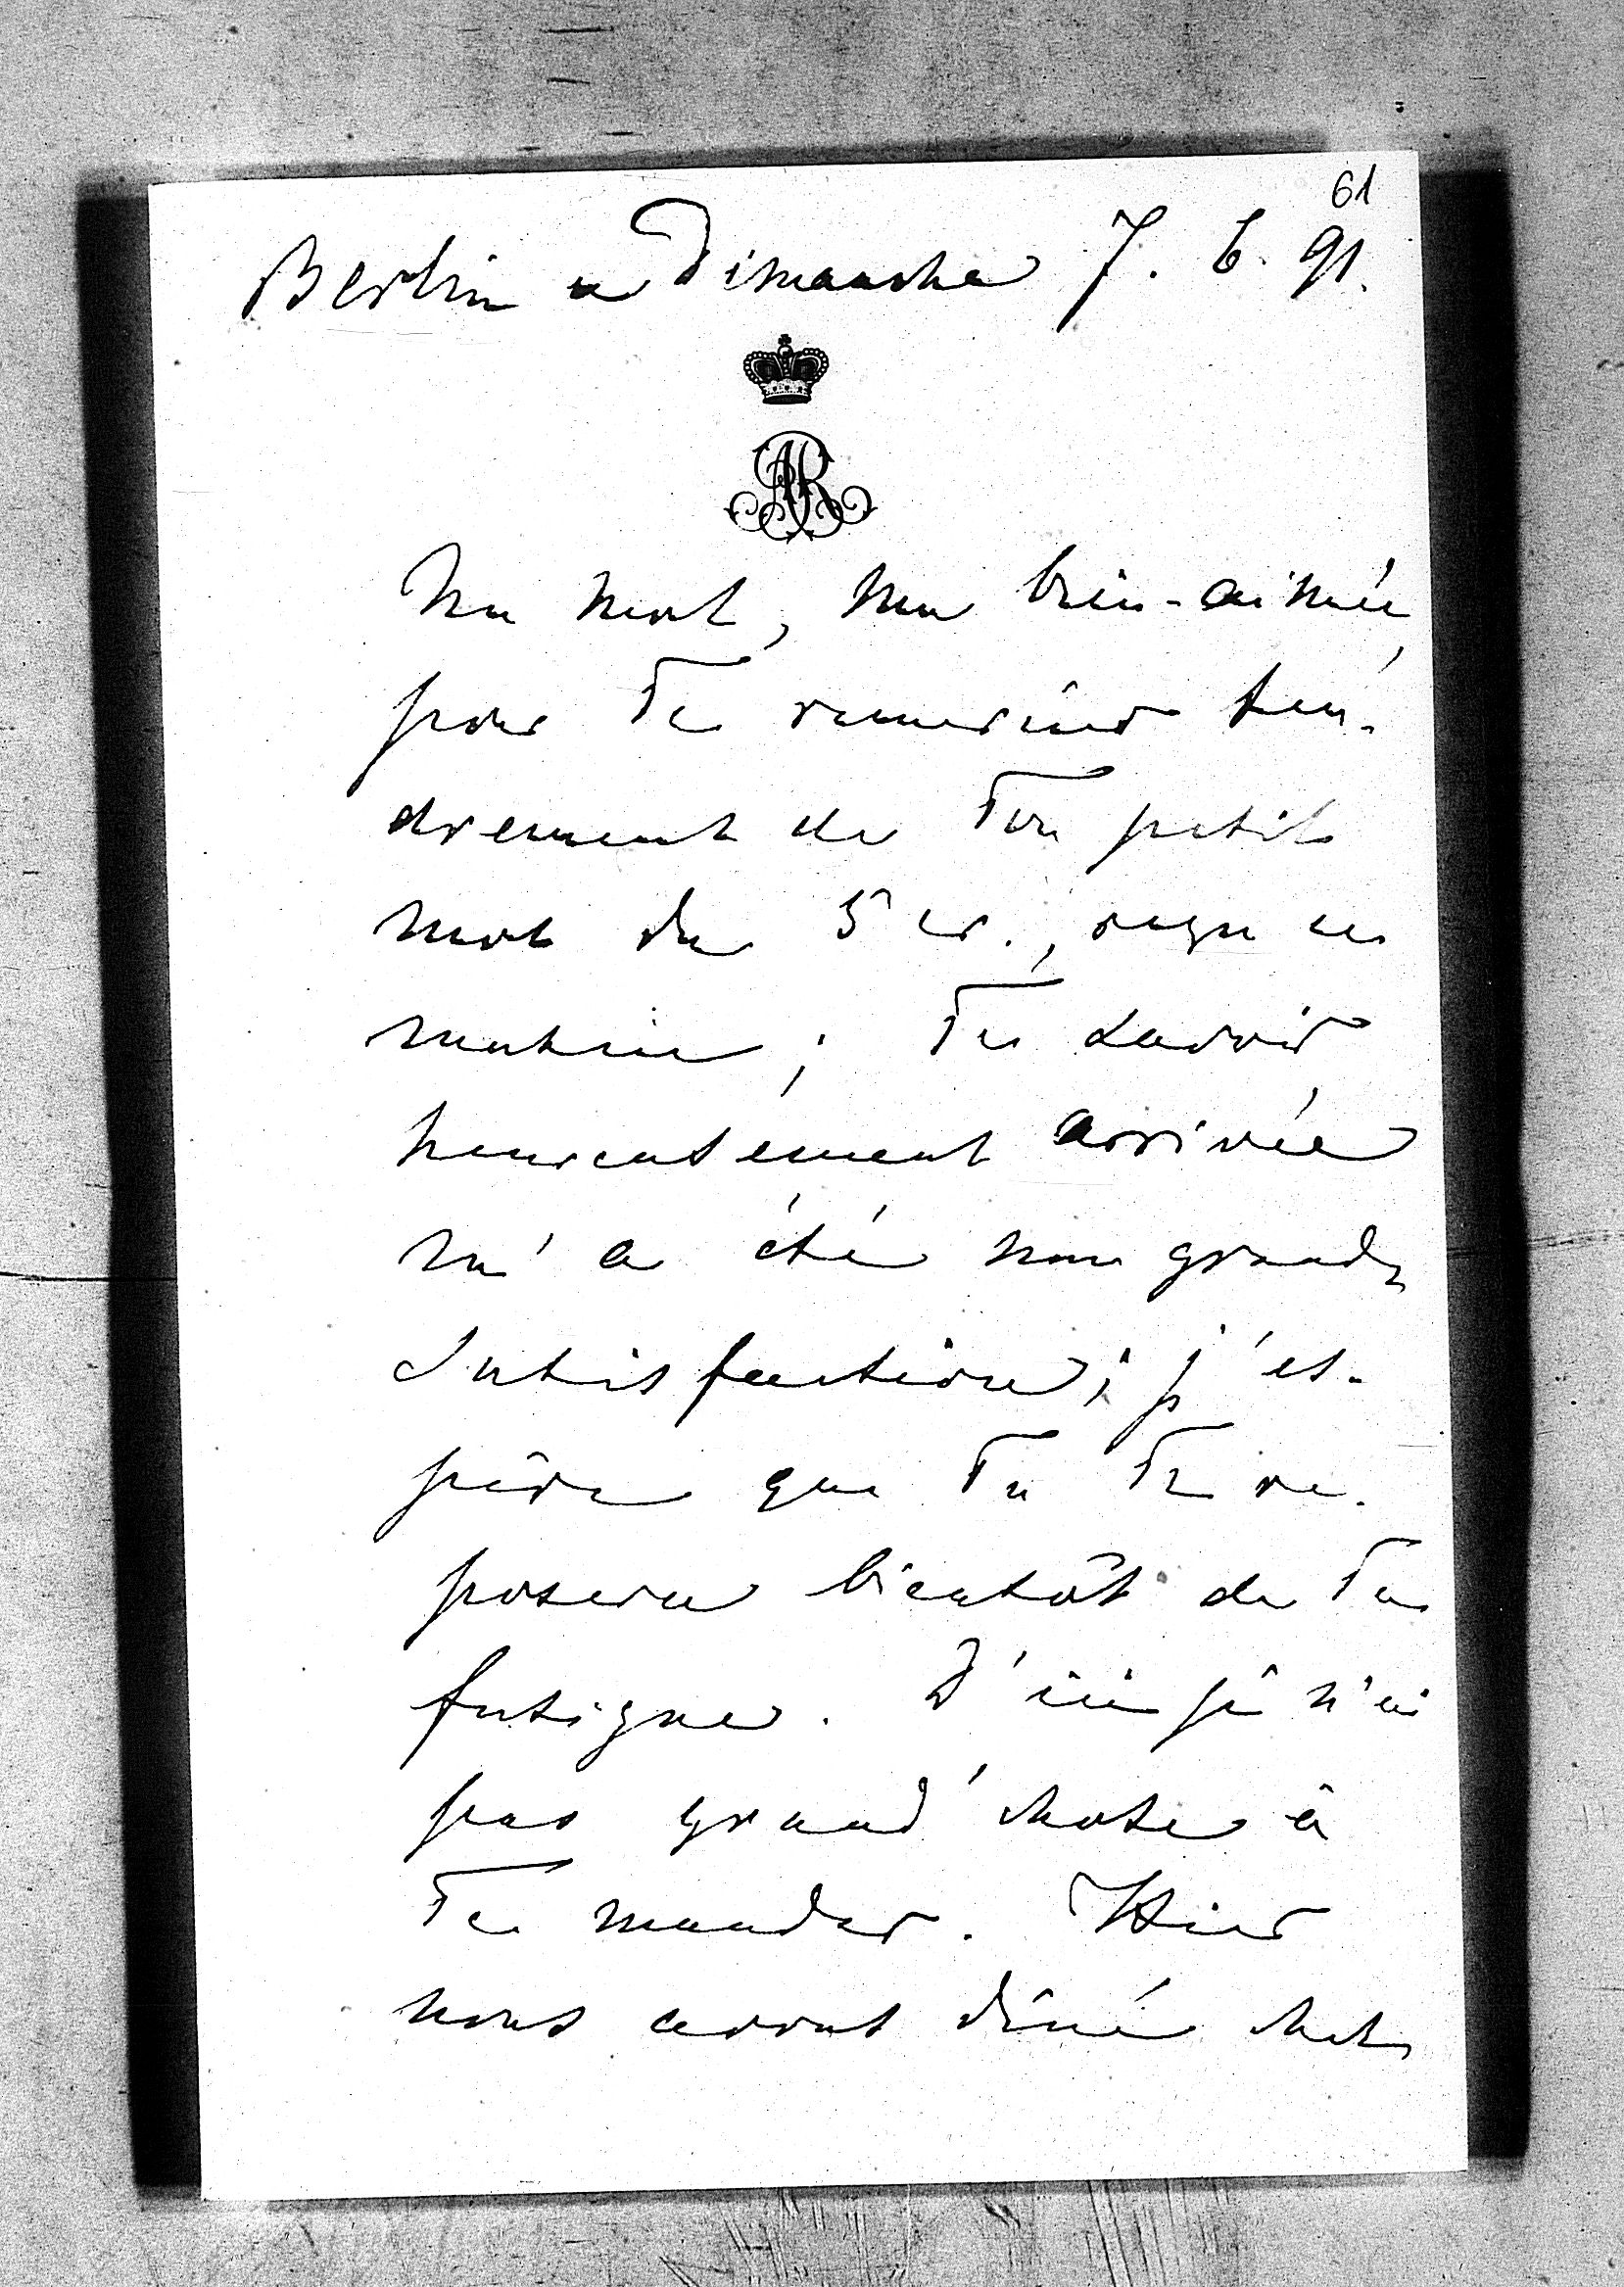 61
Berlin ce Dimanche 7. 6. 91.
AR
Un mot, ma bien-aimée,
pour Te remercier ten-
drement de Ton petit
mot du 5 cr., reçu ce
matin; Te savoir
heureusement arrivée
m'a été une grande
satisfaction; j'es-
père que Tu Te re-
poseras bientôt de Ta
fatigue. D'ici je n'ai
pas grand'chose à
Te mander. Hier
nous avons dîné chez